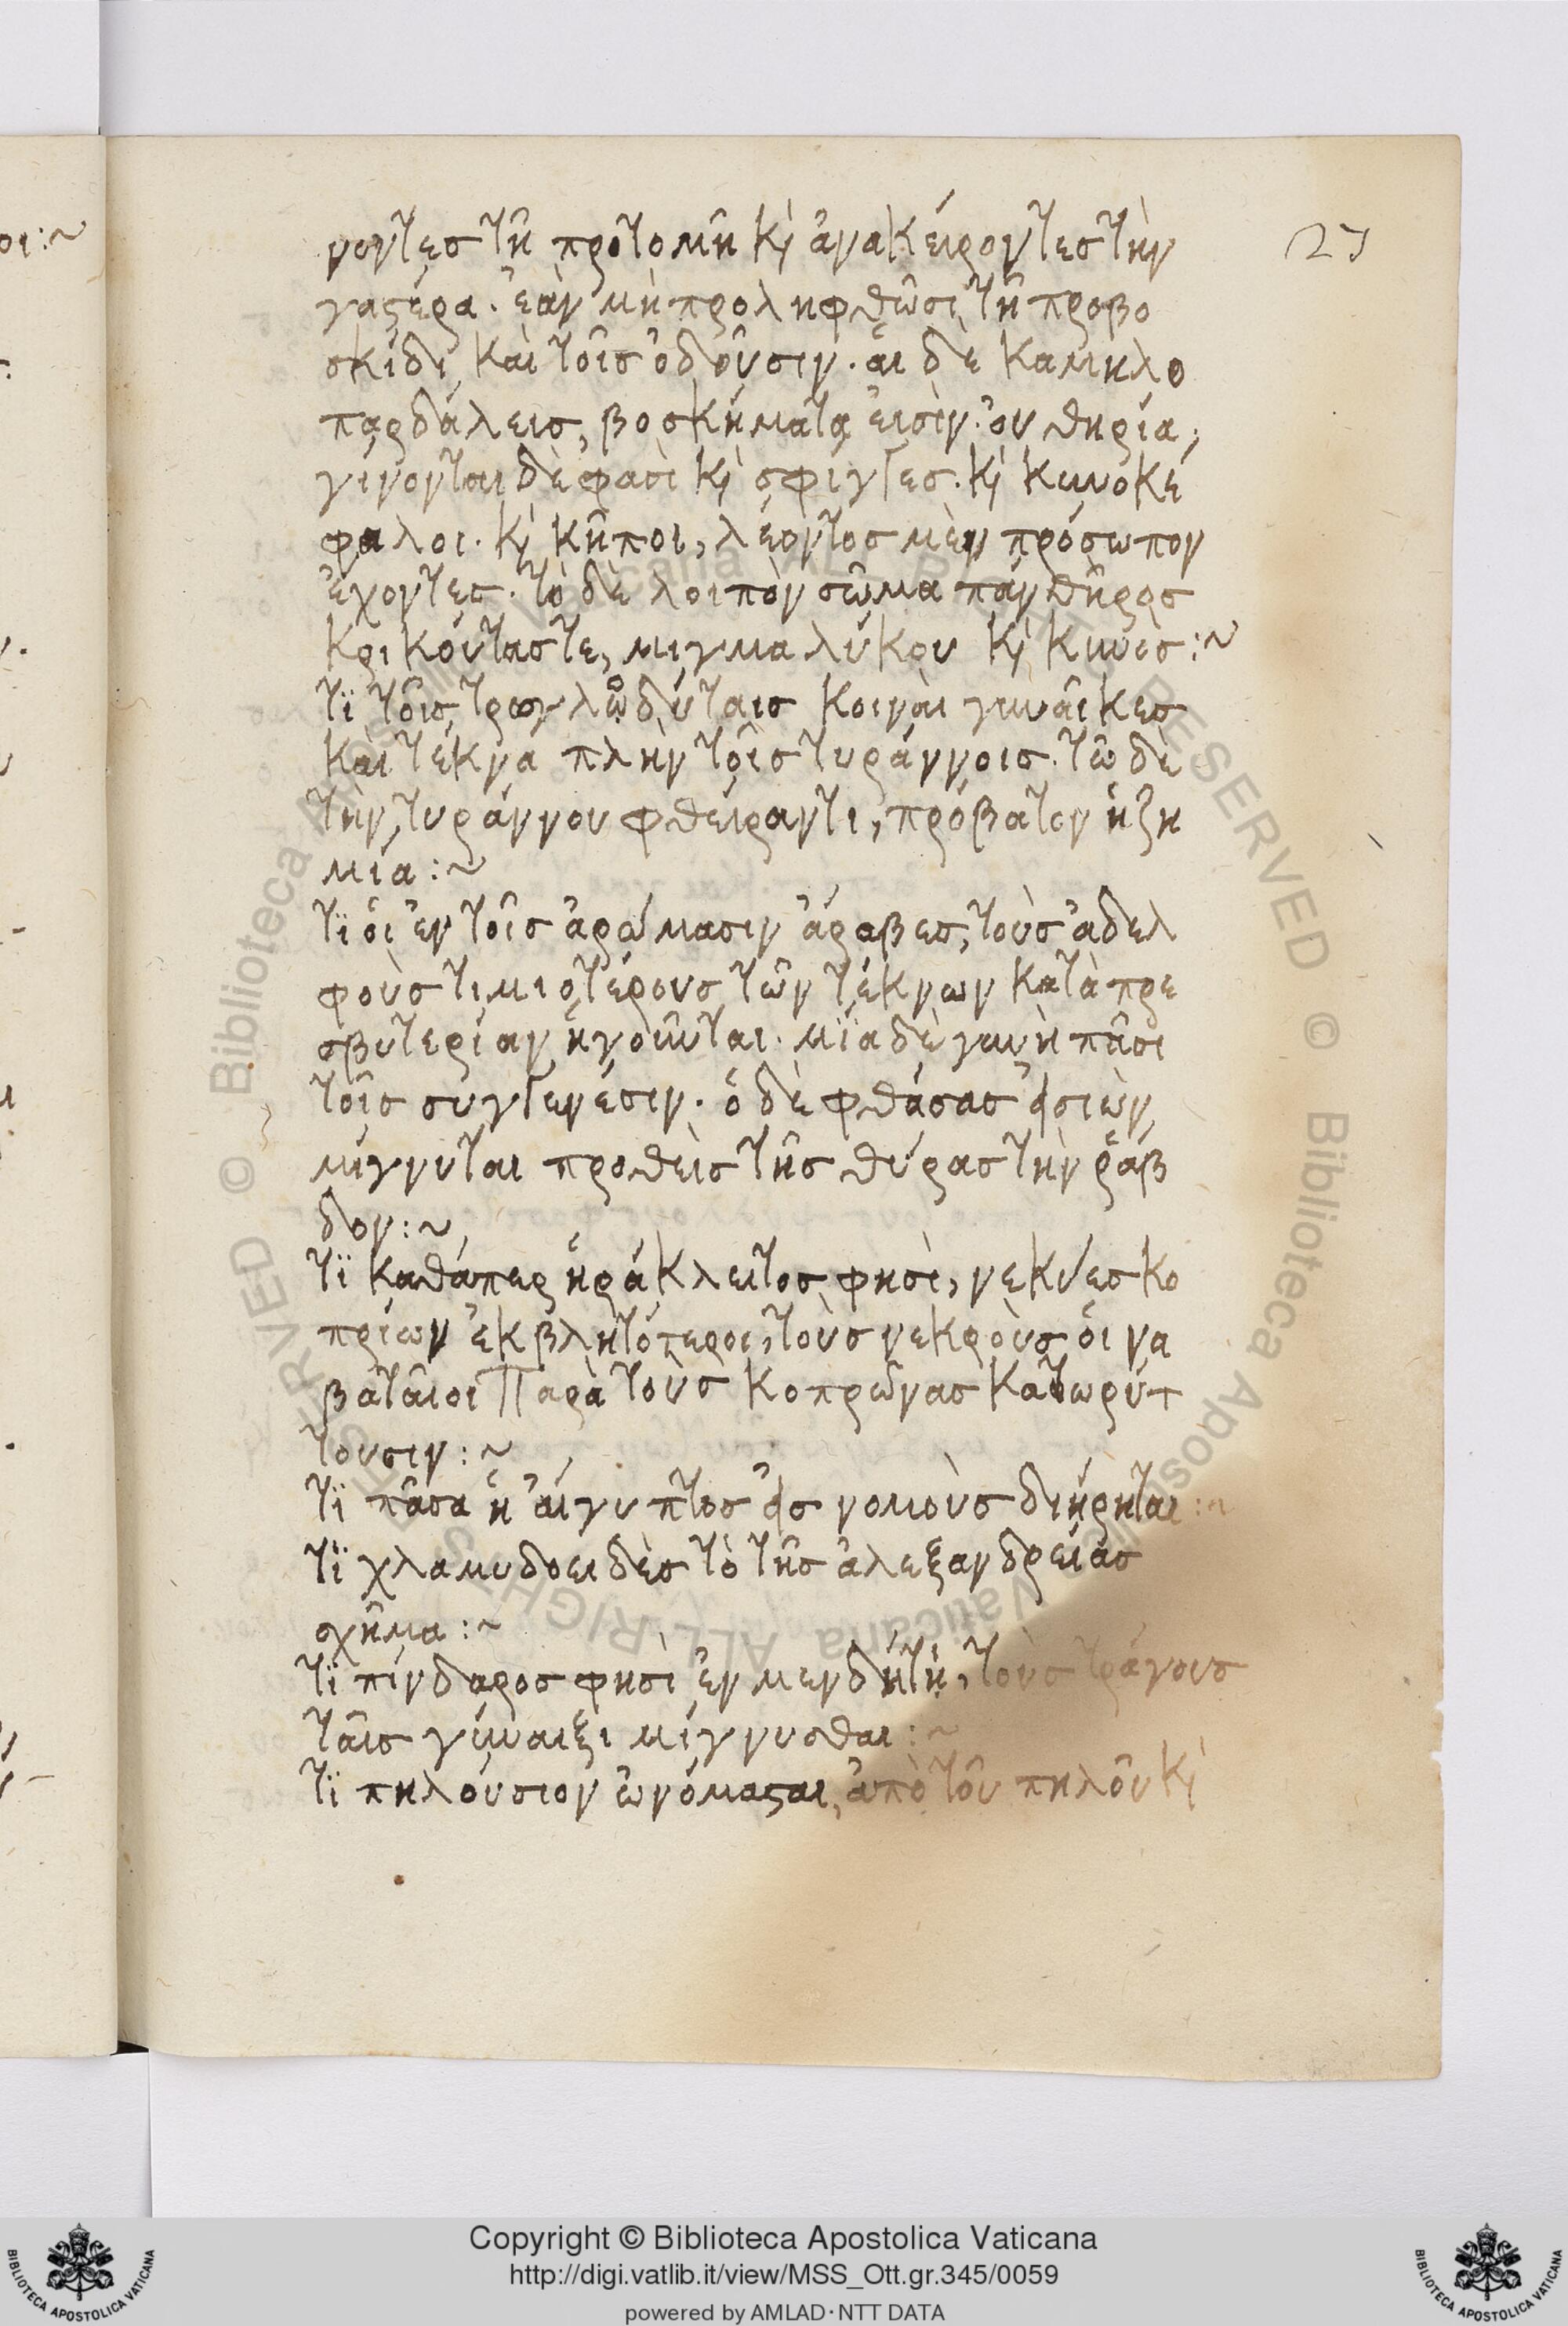 27
νοντες τῆ προτομῆ κὶ ἀνακείροντες τὴν
γαστέρα· ἐὰν μὴ προληφθῶσι τῆ προβο
σκίδι καὶ τοῖς ὀδοῦσιν· αἱ δὲ καμηλο
παρδάλεις, βοσκήματά εἰσὶν· οὐ θηρία,
γίνονται δὲ φασὶ κὶ σφίγγες· κὶ κυνοκέ
φαλοι· κὶ κῆποι, λέοντος μὲν πρόσωπον
ἔχοντες· τὸ δὲ λοιπὸν σῶμα πάνθηρος
κρικούτας τε, μιγμα λύκου κὶ κυνός:~
τϊ τοῖς τρωγλοδύταις κοιναὶ γυναῖκες
καὶ τέκνα πλὴν τοῖς τυράννοις· τῶ δὲ
τὴν τυράννου φθείραντι, πρόβατον ἡ ζη
μία:~
τϊ οἱ ἐν τοῖς ἀρώμασιν ἄραβες, τοὺς ἀδελ
φοὺς τιμιοτέρους τῶν τέκνων κατὰ πρε
σβυτερίαν ἡγοῦνται· μΐα δὲ γυνὴ πᾶσι
τοῖς συγγενέσιν· ὁ δὲ φθάσας εἰσιὼν
μίγνυται προθεὶς τῆς θύρας τὴν ῥάβ
δον:~
τϊ καθάπερ ἡράκλειτος φησὶ, νεκύες κο
πρίων ἐκβλητότεροι, τοὺς νεκροὺς οἱ να
βαταῖοι Παρὰ τοὺς κοπρῶνας κατωρύτ
τουσιν:~
τϊ πᾶσα ἡ αἴγυπτος εἰς νομοὺς διήρηται:~
τϊ χλαμυδοειδὲς τὸ τῆς ἀλεξανδρείας
σχῆμα:~
τϊ πίνδαρος φησὶ ἐν μενδήτη, τοὺς τράγους
ταῖς γύναιξι μίγνυσθαι:~
τϊ πηλούσιον ὠνόμασται, ἀπὸ τοῦ πηλοῦ κὶ
Copyright © Biblioteca Apostolica Vaticana
http://digi.vatlib.it/view/MSS_Ott.gr.345/0059
powered by AMLAD·NTT DATA